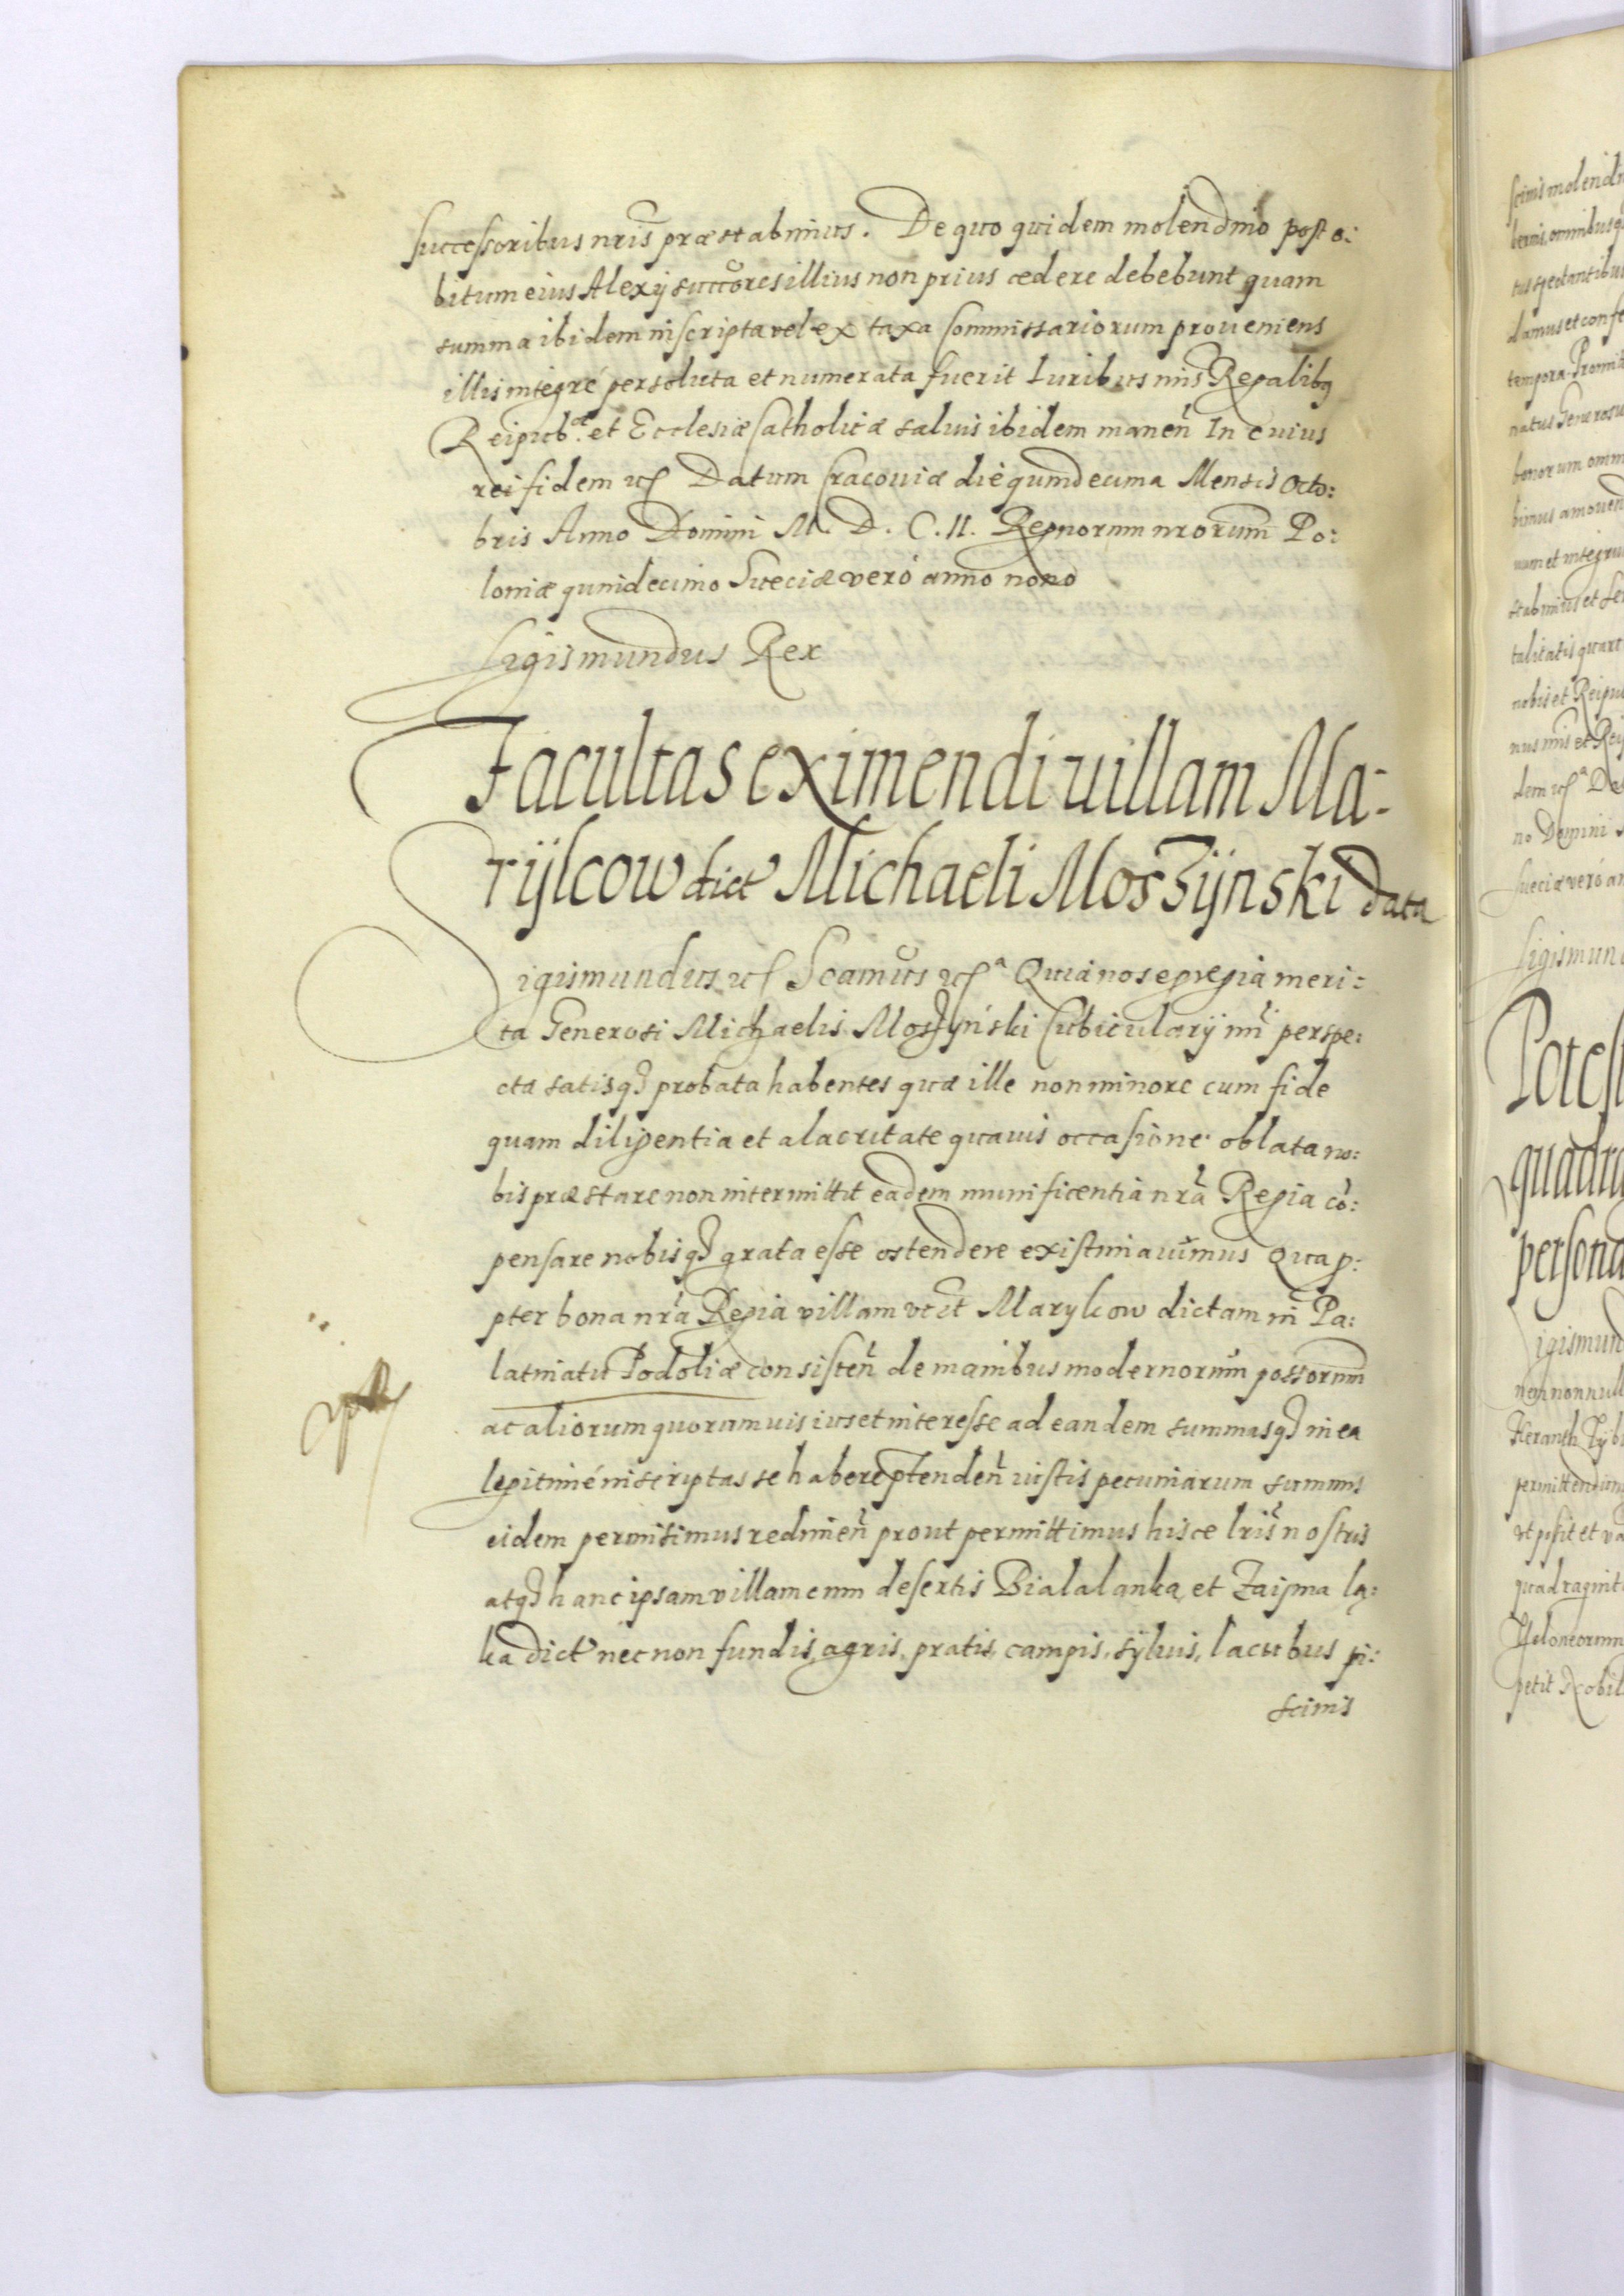 successoribus nris præstabimus. De quo quidem molendino post o:
bitum eius Alexij succōres illius non prius cedere debebunt quam
summa ibidem inscripta vel ex taxa Commissariorum proueniens
illis integré persoluta et numerata fuerit Iuribus nris Regalibq
Reipub.æ et Ecclesiæ Catholicæ saluis ibidem manen̄ In cuius
rei fidem etc Datum Cracouiæ die quindecima Mensis Octo:
bris Anno Domini M. D. C. II. Regnorum nrorum Po:
loniæ quindecimo Sueciæ veró anno nono
Sigismundus Rex
Facultas eximendi uillam Ma-
rijlcow dict Michaeli Moszijnski data
Sigismundus etc Scamus etc a Quia nos egregia meri:
ta Generosi Michaelis Moszyński Cubicularij nri perspe:
cta satisq probata habentes quæ ille non minore cum fide
quam diligentia et alacritate quauis occasione oblata no:
bis præstare non intermittit eadem munificentia nra Regia cō:
pensare nobisq grata esse ostendere existimauimus Qua p:
pter bona nra Regia villam vtt Marylcow dictam in Pa:
latinatu Podoliæ consisten̄ de manibus modernorum possorum
ac aliorum quorumuis ius et interesse ad eandem summasq in ea
legitimé inscriptas se habere ptenden̄ iustis pecuniarum summis
eidem permisimus redimen̄ prout permittimus hisce lris nostris
atq hanc ipsam villam cum desertis Bialalanka et Zaijma la:
ka dict nec non fundis, agris, pratis, campis, syluis, lacubus pi:
scinis